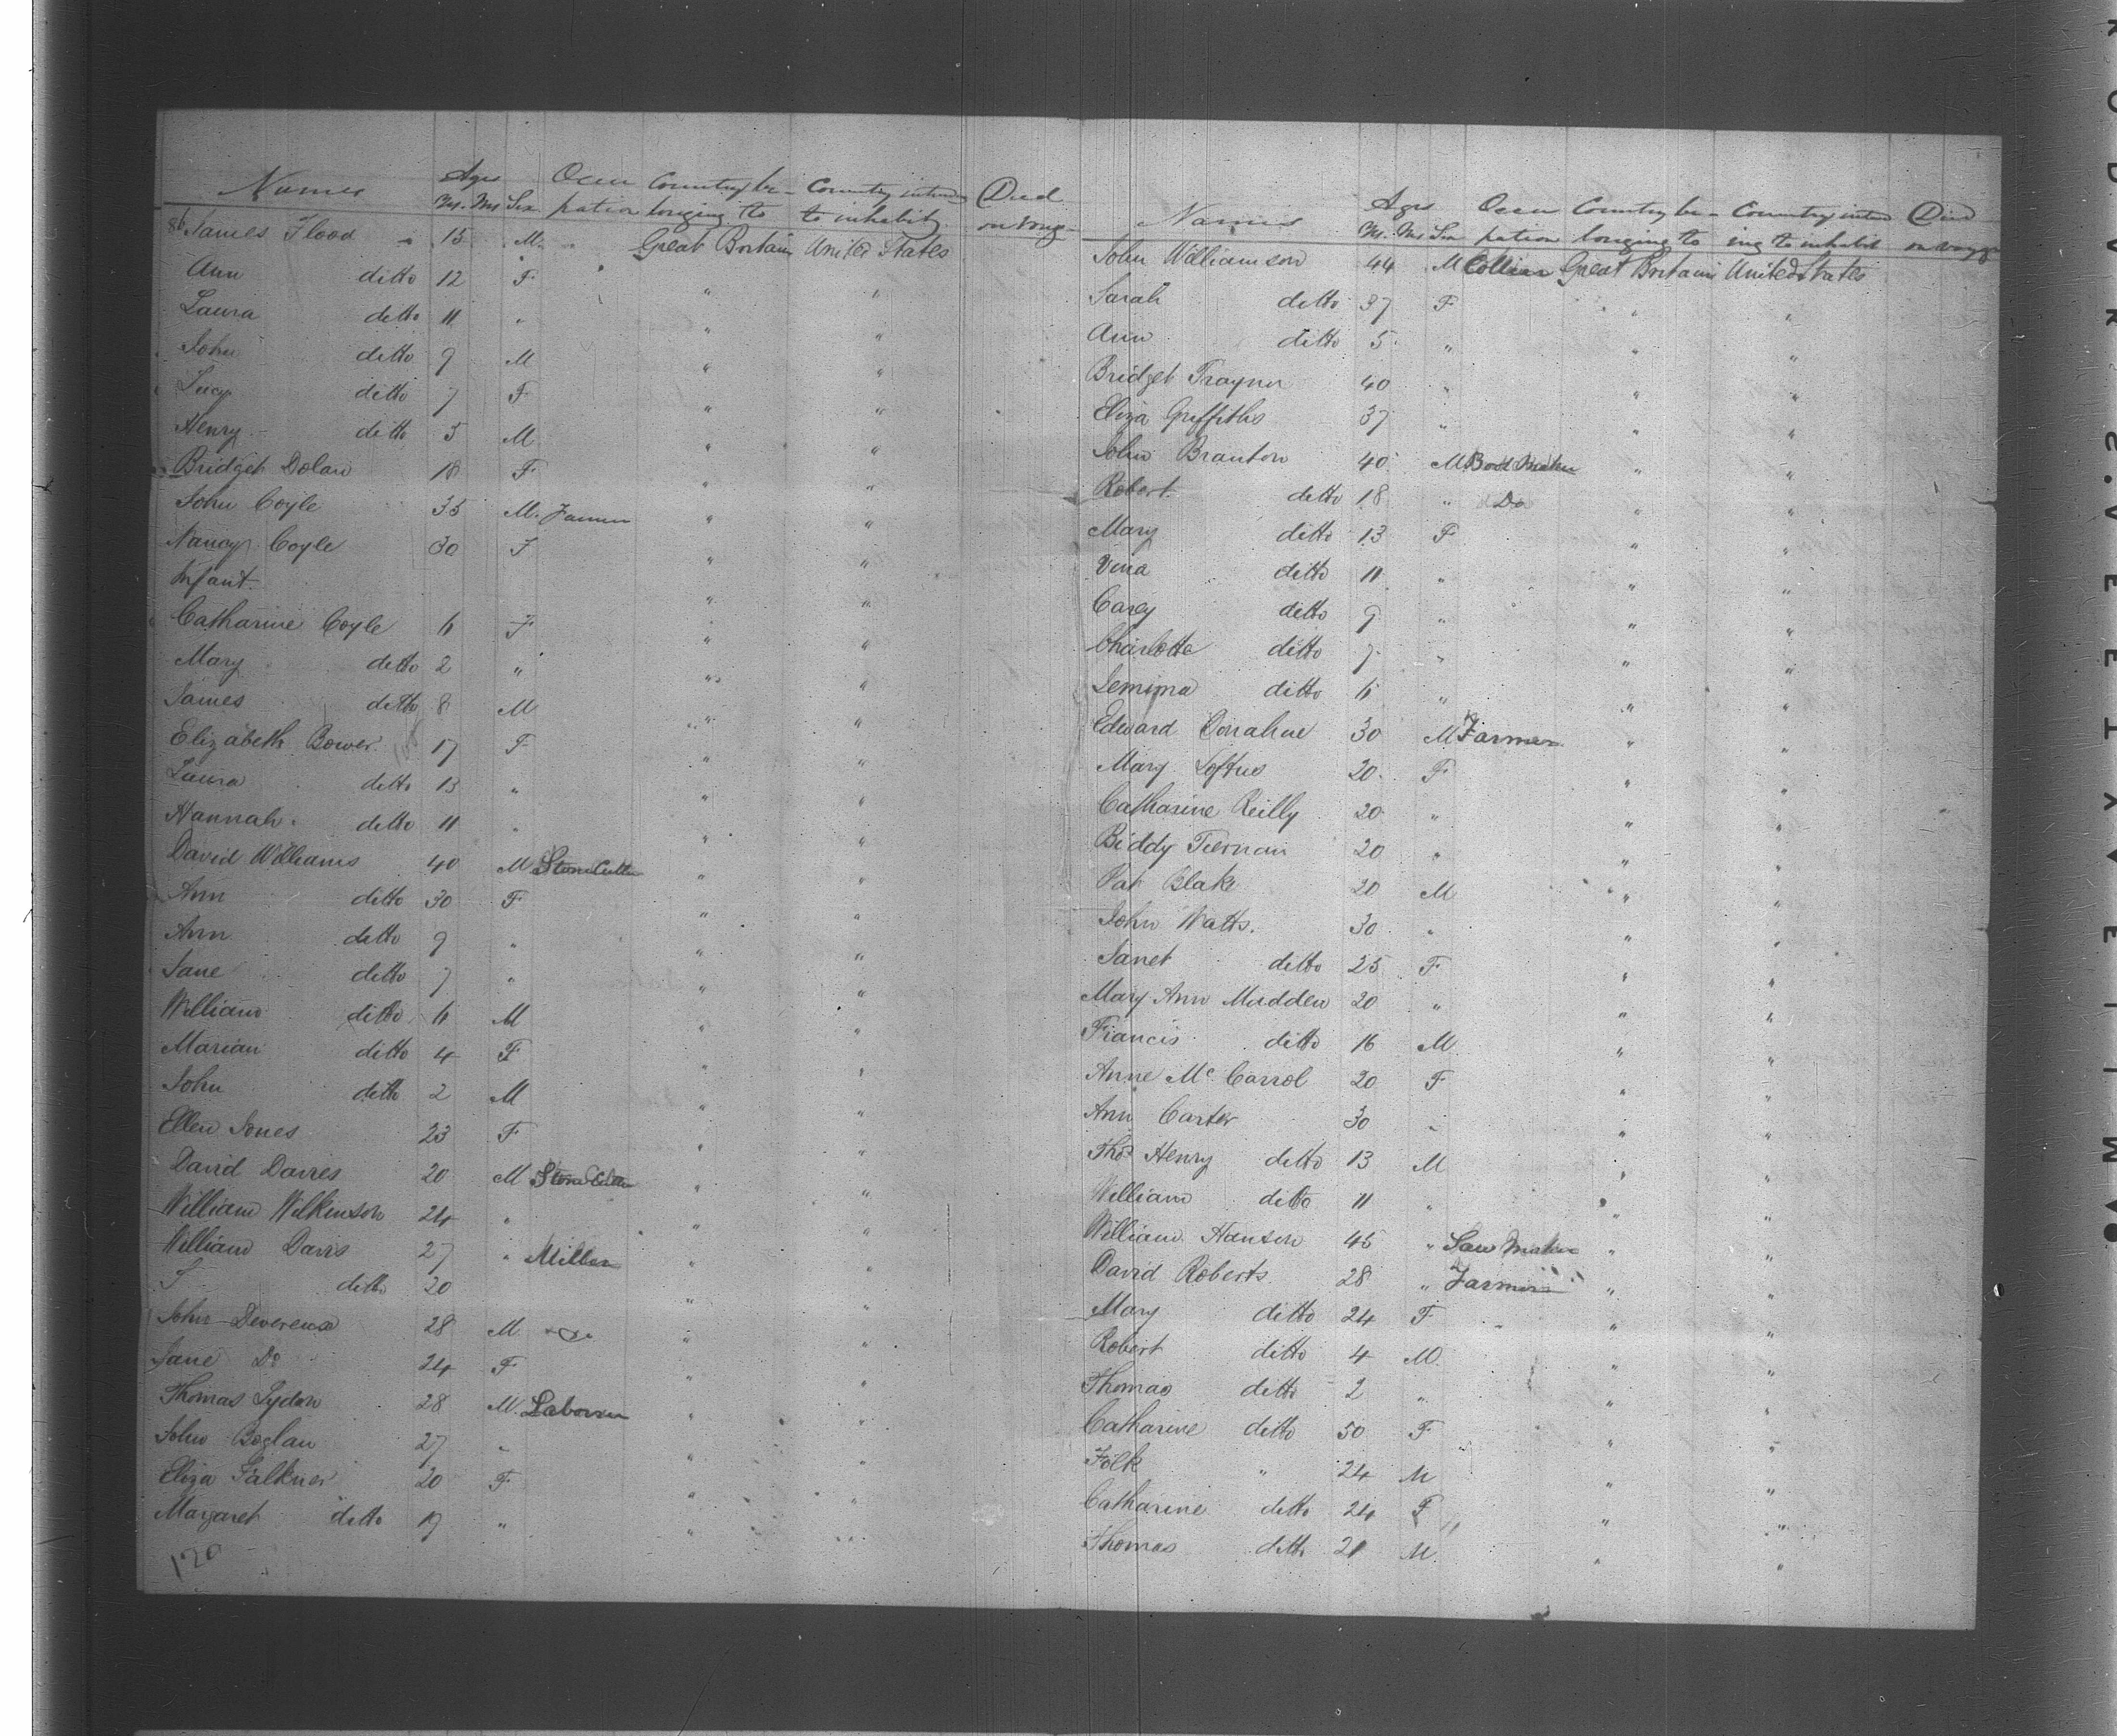 Names Ages Occu Country be- Country inten Died
Yrs. Ms Sex pation longing to to inhabit on voyg
86 James Flood 15 M " Great Britain United States
Ann ditto 12 F " "
Laura ditto 11 " " "
John ditto 9 M " "
Lucy ditto 7 F " "
Henry ditto 5 M " "
Bridget Dolan 18 F " "
John Coyle 35 M. Farmer " "
Nancy Coyle 30 F " "
Infant " "
Catharine Coyle 6 F " "
Mary ditto 2 " " "
James ditto 8 M " "
Elizabeth Bower 17 F " "
Laura ditto 13 " " "
Hannah ditto 11 " " "
David Williams 40 M Stone Cutter " "
Ann ditto 30 F " "
Ann ditto 9 " " "
Jane ditto 7 " " "
William ditto 6 M " "
Marian ditto 4 F " "
John ditto 2 M " "
Ellen Jones 23 F " "
David Davies 20 M Stone Cutter " "
William Wilkinson 24 " " "
William Davis 27 " Miller " "
S ditto 20 " "
John Devereux 28 M Do " "
Jane Do 24 F " "
Thomas Lydon 28 M. Laborer " "
John Boglan 27 " " "
Eliza Falkner 20 F " "
Margaret ditto 19 " " "
120
Names Ages Occu Country be- Country inten Died
Yrs. Ms Sex pation longing to ing to inhabit on voyg
John Williamson 44 M Collier Great Britain United States
Sarah ditto 37 F " "
Ann ditto 5 " " "
Bridget Traynor 40 " " "
Eliza Griffiths 37 " " "
John Branton 40 M Boot Maker " "
Robert ditto 18 " Do " "
Mary ditto 13 F " "
Vina ditto 11 " " "
Carey ditto 9 " " "
Charlotte ditto 7 " " "
Jemima ditto 6 " " "
Edward Donahue 30 M Farmer " "
Mary Loftus 20 F " "
Catharine Reilly 20 " " "
Biddy Tiernan 20 " " "
Pat Blake 20 M " "
John Watts. 30 " " "
Janet ditto 25 F " "
Mary Ann Madden 20 " " "
Francis ditto 16 M " "
Anne Mc Carrol 20 F " "
Ann Carter 30 " " "
Thos Henry ditto 13 M " "
William ditto 11 " " "
William Hanson 45 " Saw Maker " "
David Roberts 28 " Farmer " "
Mary ditto 24 F " "
Robert ditto 4 M " "
Thomas ditto 2 " " "
Catharine ditto 50 F " "
Folk " 24 M " "
Catharine ditto 24 F " "
Thomas ditto 21 M " "